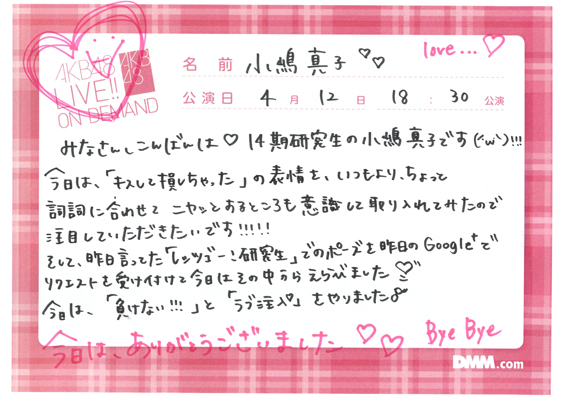 AKB48 AKB48
LIVE!!
ON DEMAND
love...♡
名前 小嶋真子♡♡
公演日 4月12日 18:30公演
みなさん、こんばんは♡ 14期研究生の小嶋真子です(´ω`)!!!
今日は、「キスして損しちゃった」の表情を、いつもより、ちょっと
詞詞に合わせて ニヤッとするところも意識して取り入れてみたので
注目していただきたいです!!!!!
そして、昨日言ってた「レッツゴー!研究生」でのポーズを昨日のGoogle+で
リクエストを受け付けて今日はその中からえらびました♡
今日は、「負けない!!!」と「ラブ注入♡」をやりました
今日は、ありがとうございました♡♡ Bye Bye
DMM.com